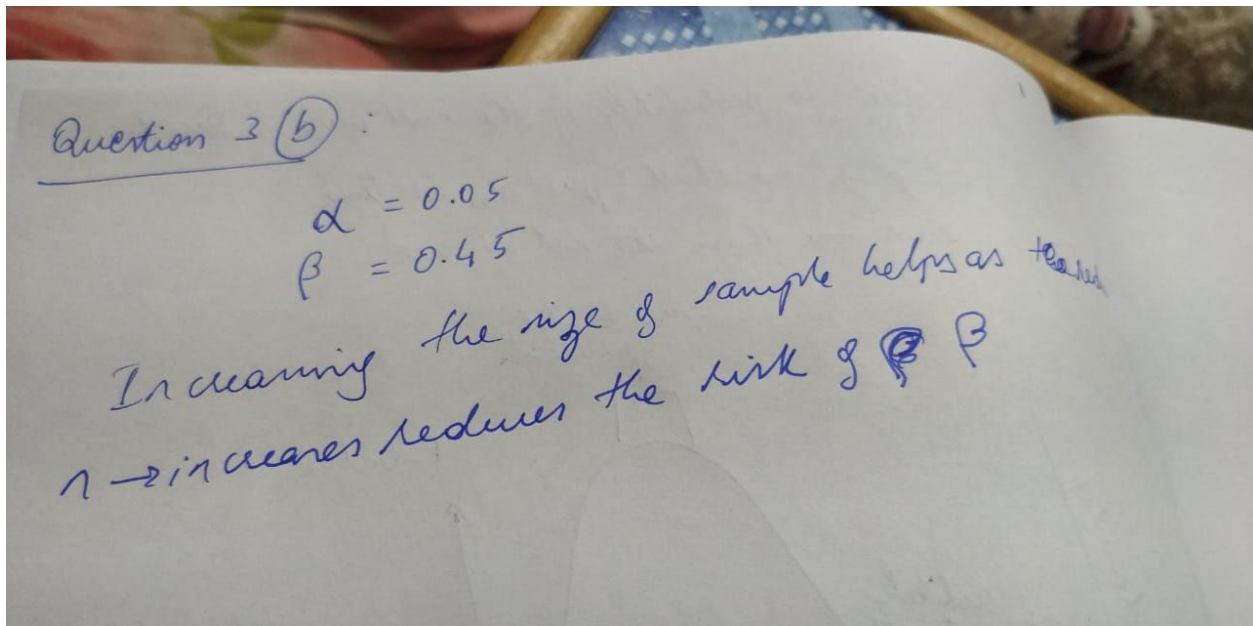 Question 3 (b) :
α = 0.05
β = 0.45
Increasing the size of sample helps as
n → increases reduces the risk of β